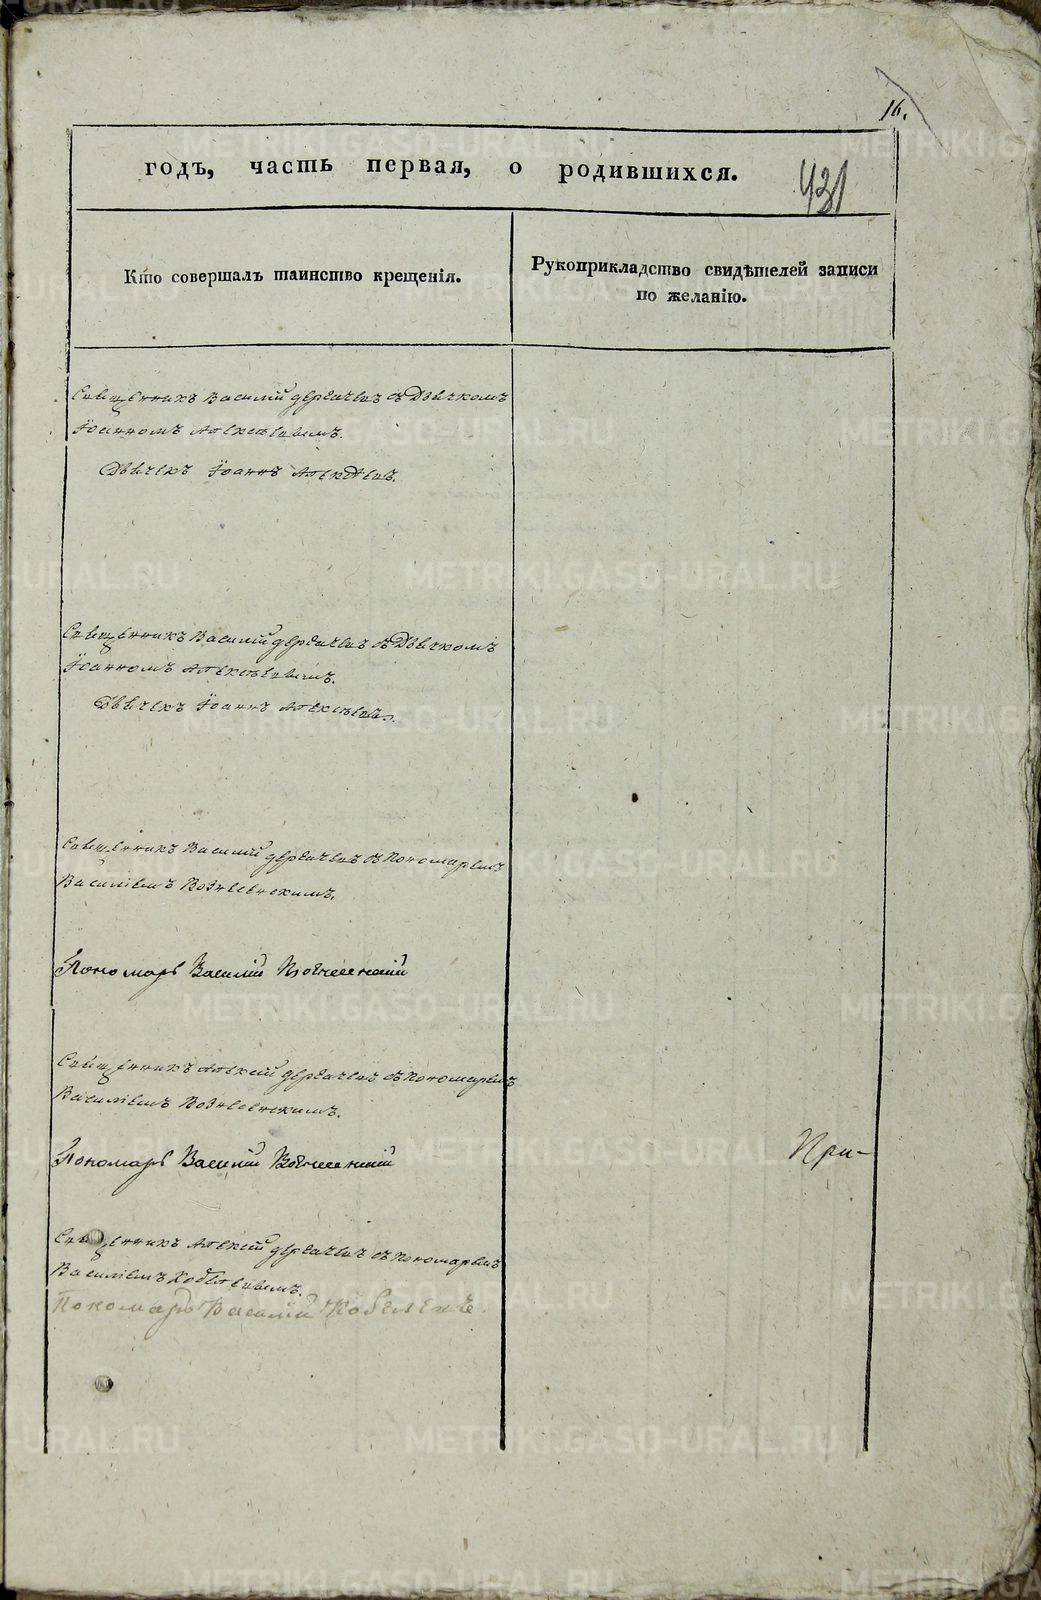 16.
годъ, часть первая, о родившихся.
431
Кто совершалъ таинство крещенія.
Рукоприкладство свидѣтелей записи
по желанію.
Священникъ Василий Дервачевъ съ Дьячкомъ
Іоанномъ Алексѣевымъ.
Дьячекъ Іоаннъ Алексѣевъ.
Священникъ Василій съ Дьячкомъ
Іоанномъ Алексѣевымъ.
Дьячекъ Іоаннъ Алексѣевъ.
Священникъ Василій съ Пономаремъ
Василіемъ Вознесенскимъ.
Пономарь Василій Вознесенскій
Священникъ Алексій съ Пономаремъ
Василіемъ Вознесенскимъ.
Пономарь Василій Вознесенскій
При-
Священникъ Алексій съ Пономаремъ
Василіемъ Кобелевымъ.
Пономарь Василій Кобелевъ.
METRIKI.GASO-URAL.RU